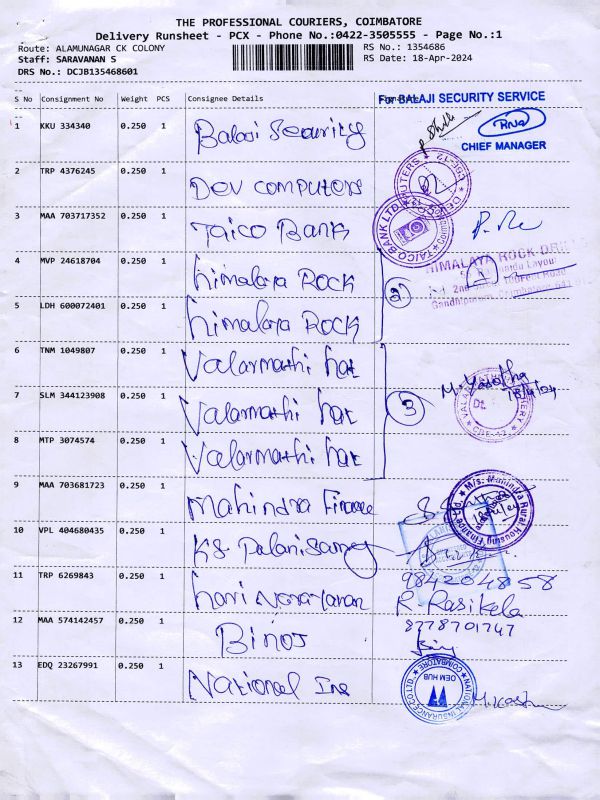 THE PROFESSIONAL COURIERS, COIMBATORE
Delivery Runsheet - PCX - Phone No.:0422-3505555 - Page No.:1
Route: ALAMUNAGAR CK COLONY
RS No.: 1354686
Staff: SARAVANAN S
RS Date: 18-Apr-2024
DRS No.: DCJB135468601
S No Consignment No Weight PCS Consignee Details
For BALAJI SECURITY SERVICE
1 KKU 334340 0.250 1 Balaji Security
CHIEF MANAGER
2 TRP 4376245 0.250 1 Dev Computers
3 MAA 703717352 0.250 1 Taico Bank
TAICO BANK LTD
4 MVP 24618704 0.250 1 himalaya Rock
2
HIMALAYA ROCK DRILL
2nd
Gandhipuram, Coimbatore-641 012
5 LDH 600072401 0.250 1 himalaya Rock
6 TNM 1049807 0.250 1 Valarmathi hat
7 SLM 344123908 0.250 1 Valarmathi hat
3
M. Yasotha
18/4/24
8 MTP 3074574 0.250 1 Valarmathi hat
9 MAA 703681723 0.250 1 Mahindra Finance
M/s. Mahindra Rural Housing Finance Ltd.
10 VPL 404680435 0.250 1 KS Palanisamy
11 TRP 6269843 0.250 1 hari Narayanan
9842048858
R. Rasikela
12 MAA 574142457 0.250 1 Binoj
8778701747
13 EDQ 23267991 0.250 1 National Ins
NATIONAL INSURANCE CO LTD
COIMBATORE
OEM HUB